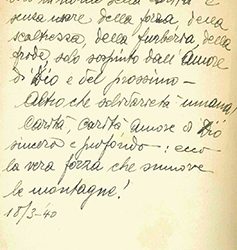 senza usare della forza, della
scaltrezza, della furberia della
frode, solo sospinto dall'Amore
di Dio e del prossimo -
Altro che solidarietà umana!
Carità, carità amore di Dio
sincero e profondo: ecco
la vera forza che smuove
le montagne!
18/3-40